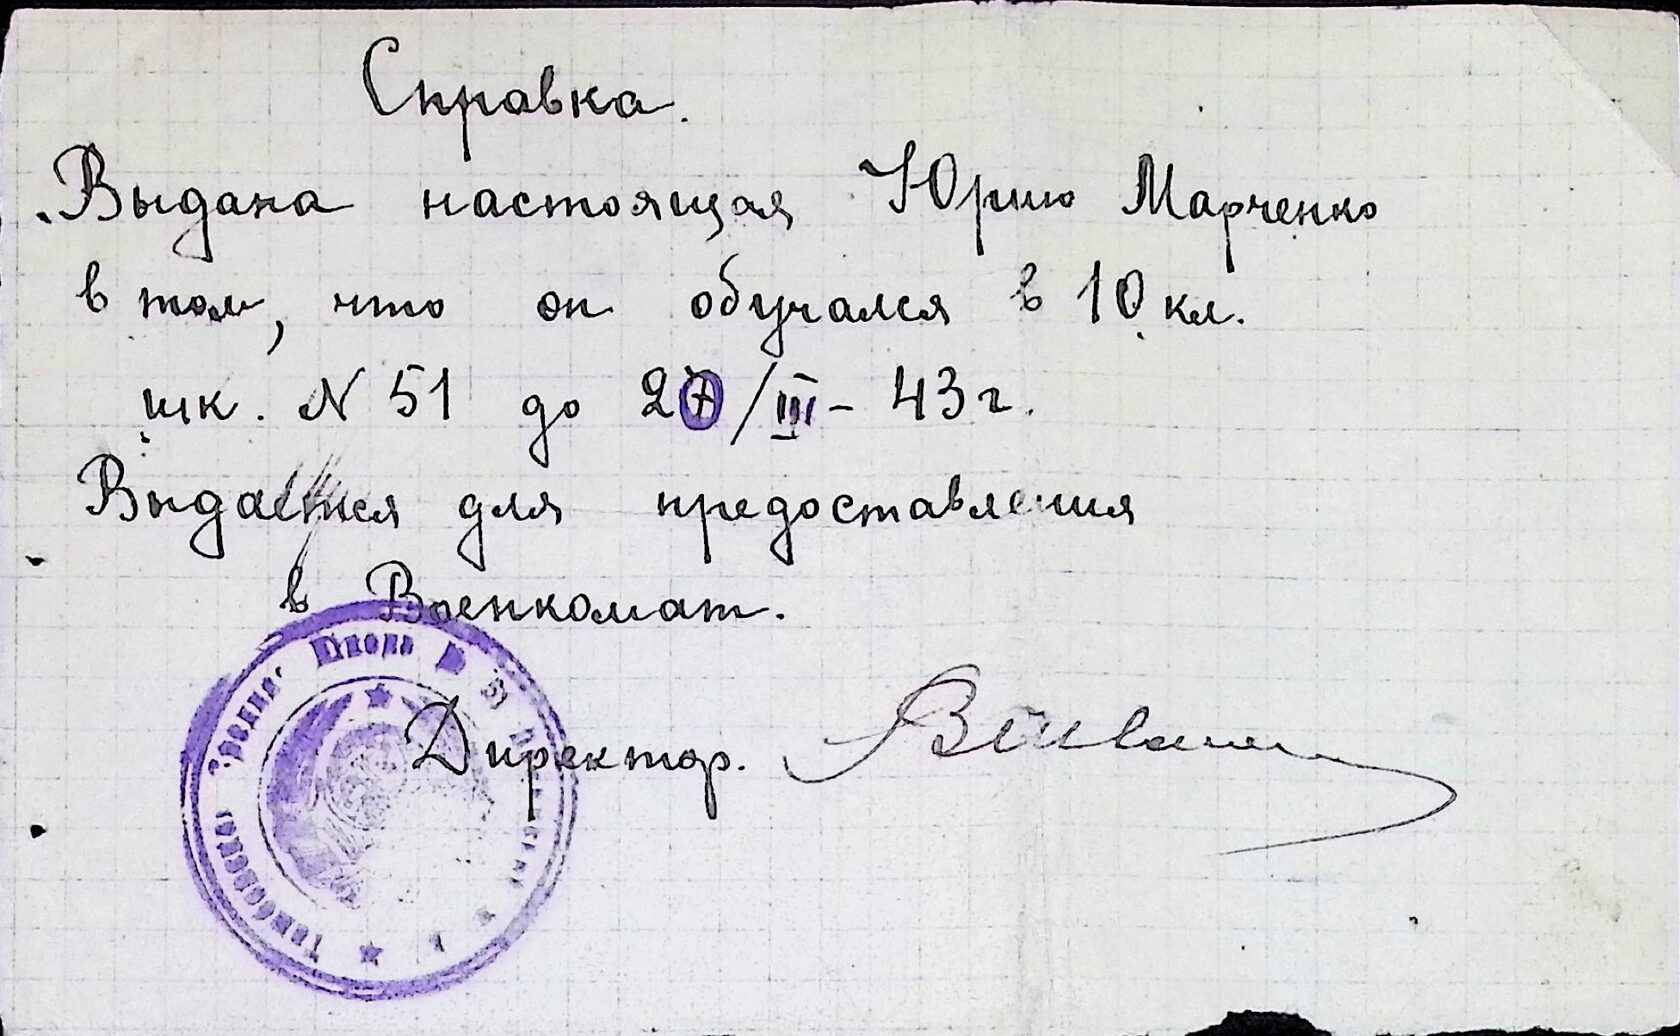 Справка.
Выдана настоящая Юрию Марченко
в том, что он обучался в 10 кл.
шк. N 51 до 20/III - 43 г.
Выдается для предоставления
в Военкомат.
Директор.
Средняя Школа № 51